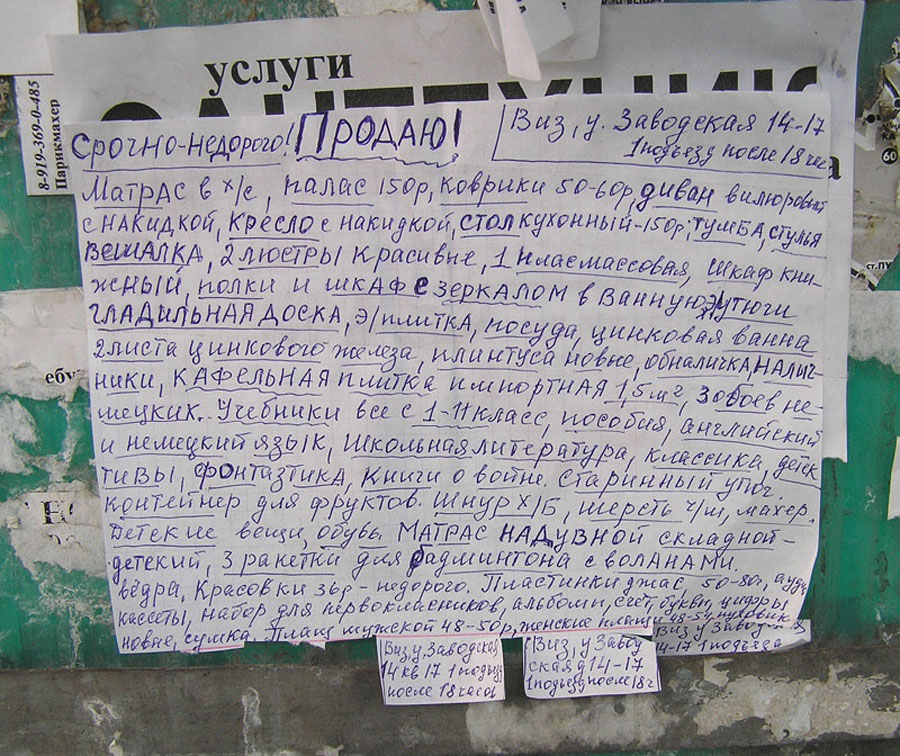 услуги
САНТЕХНИК
8-919-369-0-485
Парикмахер
Срочно-недорого! Продаю!
Виз, у. Заводская 14-17
1 подъезд после 18 час
Матрас в х/с, палас 150р, коврики 50-60р диван вилюровый
с накидкой, кресло с накидкой, стол кухонный-150р, тумба, стулья
вешалка, 2 люстры красивые, 1 пласмассовая, шкаф кни-
жный, полки и шкаф с зеркалом в ванную, э/утюги
гладильная доска, э/плитка, посуда, цинковая ванна
2 листа цинкового железа, плинтуса новые, обналичка, налич-
ники, кафельная плитка импортная 1,5 м², обоев не-
мецких. Учебники все с 1-11 класс, пособия, английский
и немецкий язык, школьная литература, классика, детек
тивы, фонтазтика, книги о войне. Старинный утюг.
контейнер для фруктов. Шнур х/б, шерсть ч/ш, махер.
Детские вещи, обувь. Матрас надувной складной-
детский, 3 ракетки для бадминтона с воланами.
вёдра, Красовки 36р-недорого. Пластинки джас, 50-80г, аудио
кассеты, набор для первокласников, альбомы, счёт, буквы, цифры
новые, сумка. Плащ мужской 48-50р, женские плащи 48-54, пуховик
Виз, у, Заводская
14 кв 17 1 подъез
после 18 часов
Виз, у Завод
ская д 14-17
1 подъезд после 18 ч
Виз у Завод
14-17 1 подъезд
60
ст.пу
ебу